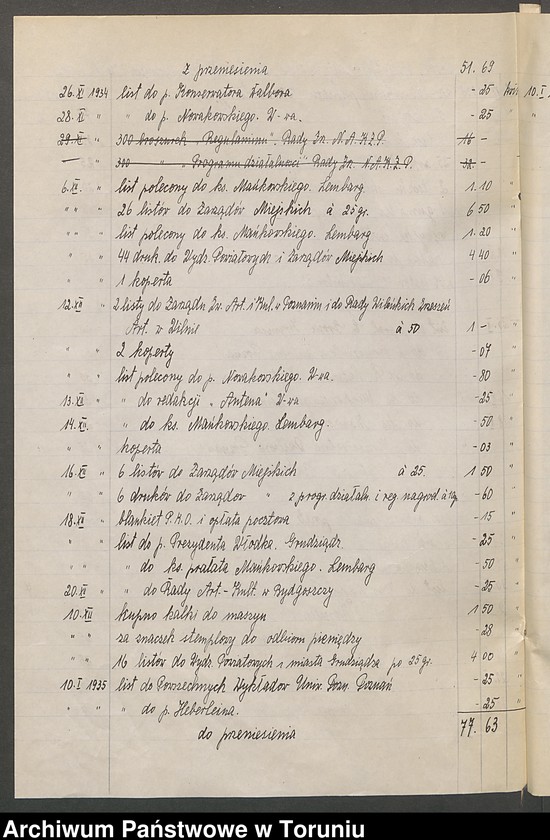 Z przeniesienia 51. 69
26.XI 1934 list do p. Konserwatora Dalbora - 25
28.XI " " do p. Nowakowskiego. W-wa. - 25
29.XI " 300 broszurek „Regulaminu" Rady Zw. N.A.K.Z.P. 16 -
— 300 " „Programu działalności" Rady Zw. N.A.K.Z.P. 32 -
6.XII. " list polecony do ks. Mańkowskiego. Lembarg 1. 10
" " 26 listów do Zarządów Miejskich à 25 gr. 6 50
" " list polecony do ks. Mańkowskiego. Lembarg 1. 20
" " 44 druk. do Wydz. Powiatowych i Zarządów Miejskich 4 40
" " 1 koperta - 06
12.XII " 2 listy do Zarządu Zw. Art. i Kul. w Poznaniu i do Rady Wileńskich Zrzeszeń
Art. w Wilnie à 50 1 -
" " 2 koperty - 07
" " list polecony do p. Nowakowskiego. W-wa. - 80
13.XII " " do redakcji „Antena" W-wa - 25
14.XII. " " do ks. Mańkowskiego. Lembarg. - 50
" " koperta - 03
16.XII " 6 listów do Zarządów Miejskich à 25. 1 50
" " 6 druków do Zarządów " z progr. działaln. i reg. nagrod. - 60
18.XII " blankiet P.K.O. i opłata pocztowa - 15
" " list do p. Prezydenta Włodka. Grudziądz. - 25
" " " do ks. prałata Mańkowskiego. Lembarg - 50
20.XII " " do Rady Art.-Kult. w Bydgoszczy - 25
10.XII " kupno kalki do maszyn 1 50
" " za znaczek stemplowy do odbioru pieniędzy - 28
" " 16 listów do Wydz. Powiatowych i miasta Grudziądza po 25 gr. 4 00
10.I 1935 list do Powszechnych Wykładów Uniw. Pozn. Poznań - 25
" " " do p. Heberleina. - 25
do przeniesienia 77. 63
10.I
Archiwum Państwowe w Toruniu